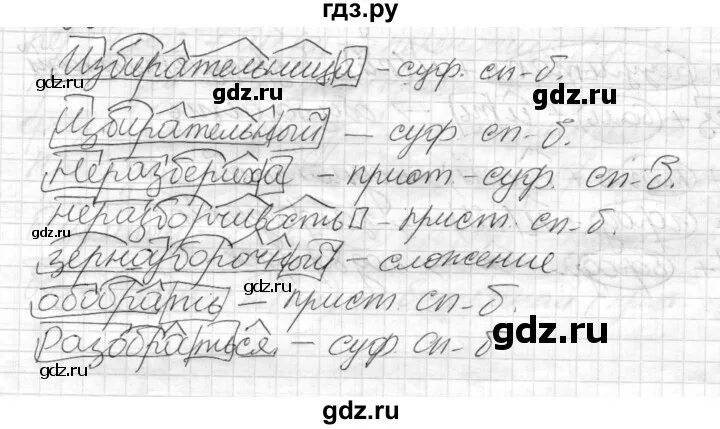 гдз.ру
Избирательница – суф. сп-б.
gdz.ru
gdz.ru
Избирательный – суф. сп-б.
Неразбериха – прист.-суф. сп-б.
gdz.ru
неразборчивость – прист. сп-б.
gdz.ru
зерноуборочный – сложение
обобрать – прист. сп-б.
gdz.ru
разобраться – суф. сп-б
gdz.ru
gdz.ru